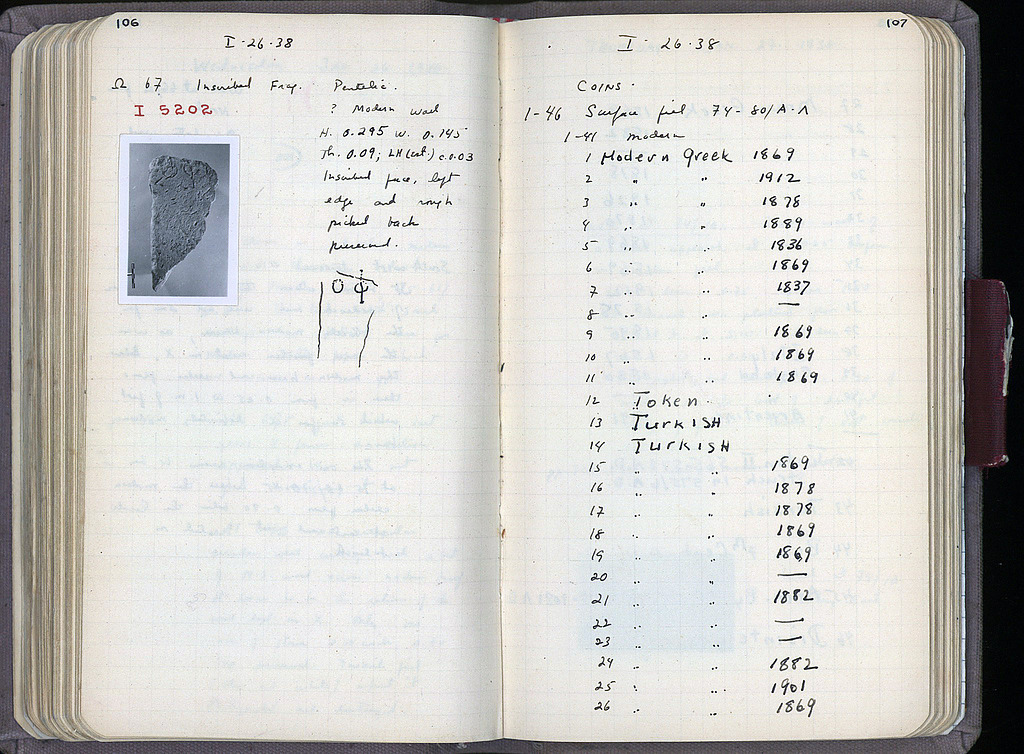 106
I-26-38
Ω 67 Inscribed Frag. Pentelic.
I 5202
? Modern wall
H. 0.295 W. 0.145
Th. 0.09; LH (est.) c.0.03
Inscribed face, left
edge and rough
picked back
preserved.
Ο Φ
107
I-26-38
COINS.
1-46 Surface fill 74-80/Α-Λ
1-41 modern
1 Modern Greek 1869
2 " " 1912
3 " " 1878
4 " " 1889
5 " " 1836
6 " " 1869
7 " " 1837
8 " " —
9 " " 1869
10 " " 1869
11 " " 1869
12 Token
13 Turkish
14 Turkish
15 " " 1869
16 " " 1878
17 " " 1878
18 " " 1869
19 " " 1869
20 " " —
21 " " 1882
22 " " —
23 " " —
24 " " 1882
25 " " 1901
26 " " 1869